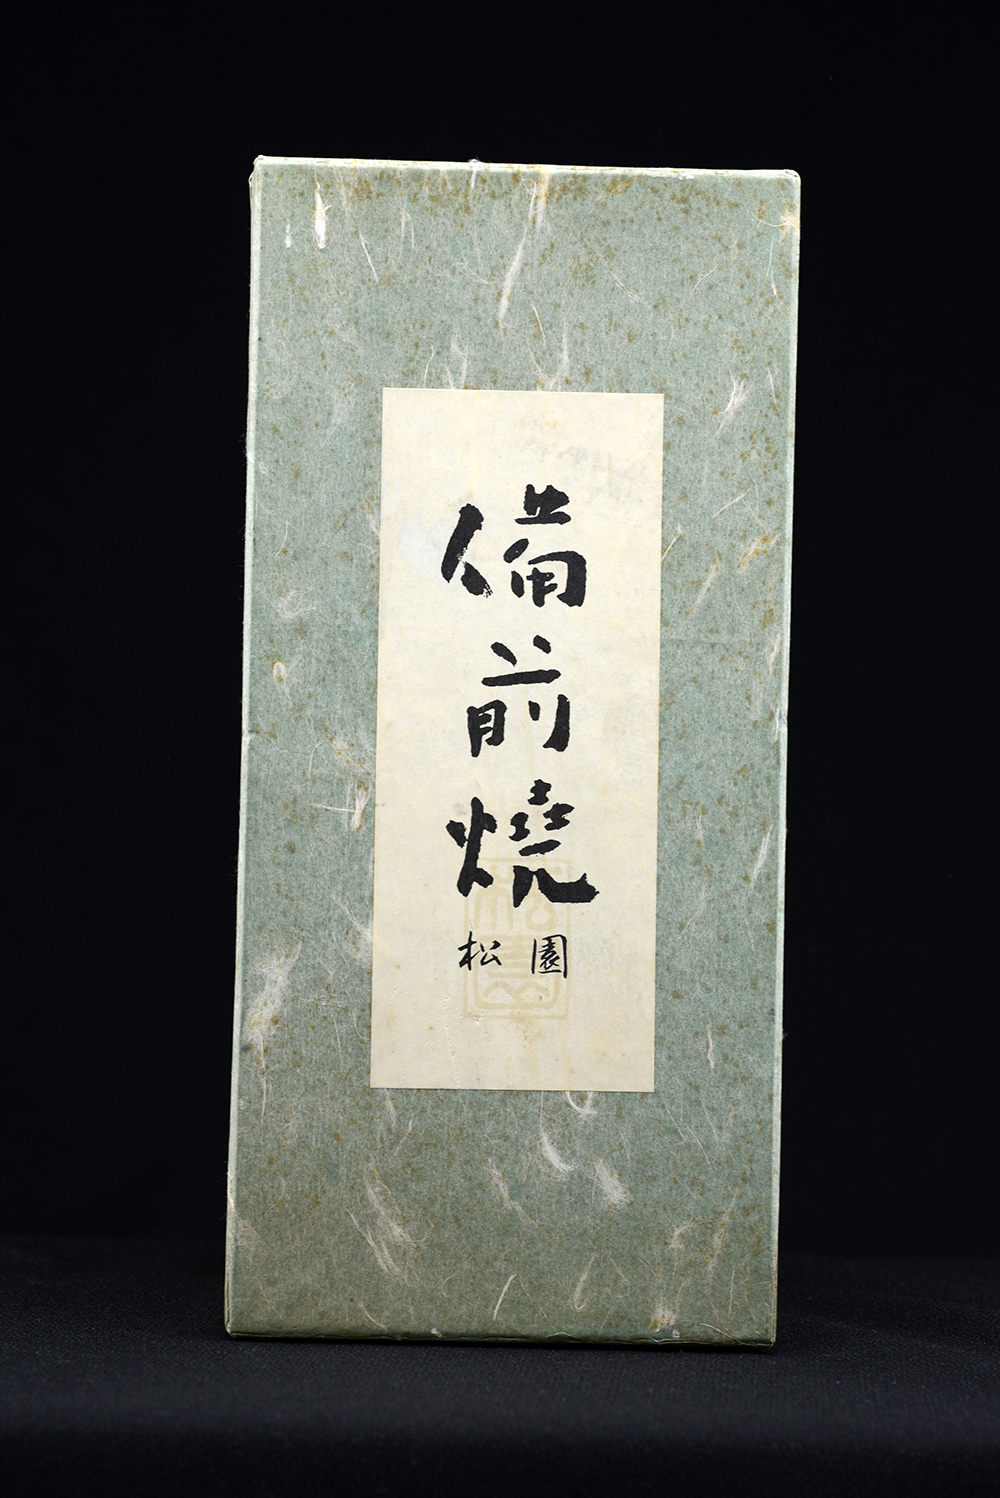 備前燒
松園